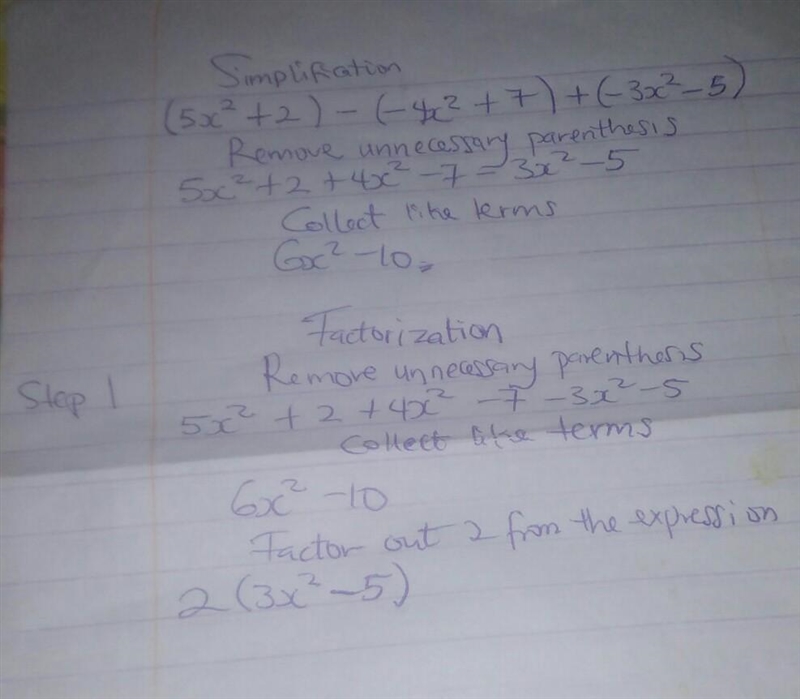 Simplification
(5x² + 2) - (-4x² + 7) + (-3x² - 5)
Remove unnecessary parenthesis
5x² + 2 + 4x² - 7 - 3x² - 5
Collect like terms
6x² - 10
Factorization
Remove unnecessary parenthesis
Step 1
5x² + 2 + 4x² - 7 - 3x² - 5
Collect like terms
6x² - 10
Factor out 2 from the expression
2(3x² - 5)